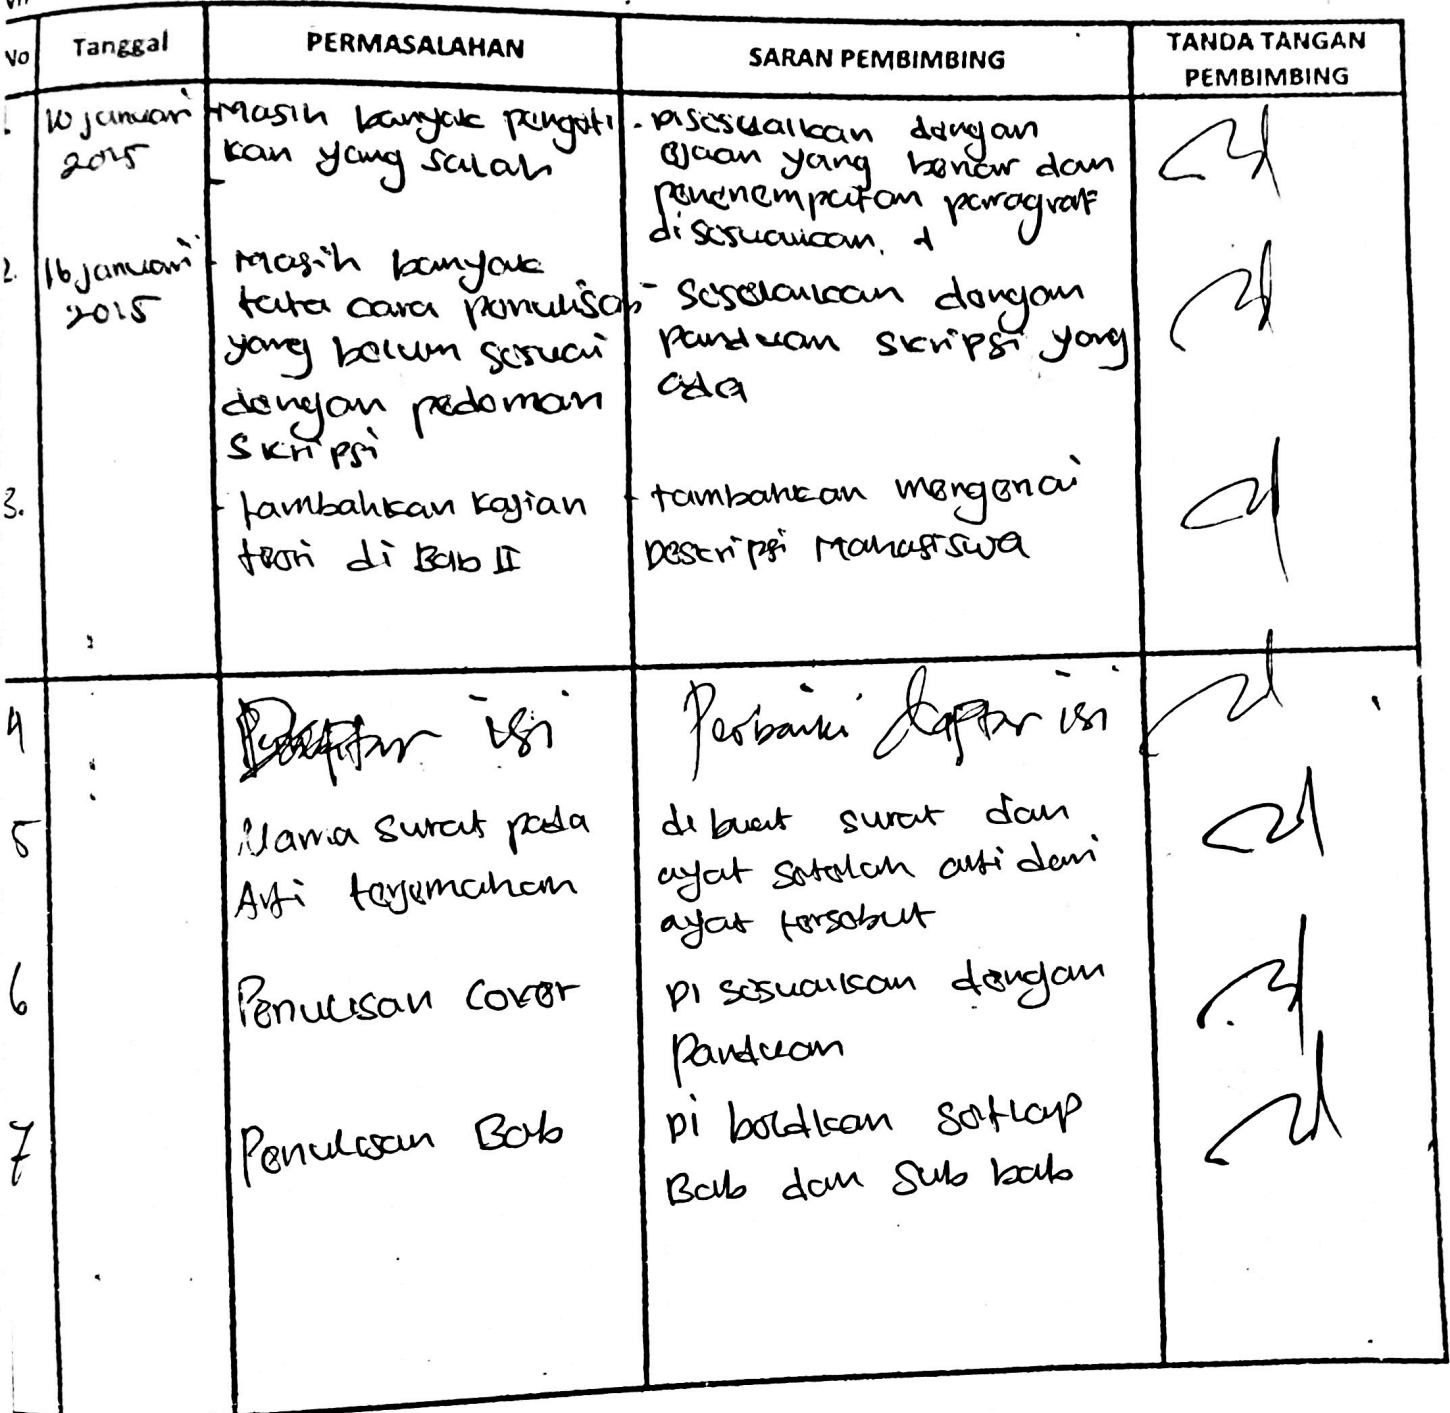 No Tanggal PERMASALAHAN SARAN PEMBIMBING TANDA TANGAN PEMBIMBING
1. 10 januari 2015
- Masih banyak pengeti
kan yang salah
- Disesuaikan dengan
ejaan yang benar dan
penenempatan paragraf
disesuaikan.
2. 16 januari 2015
- Masih banyak
tata cara penulisan
yang belum sesuai
dengan pedoman
skripsi
- Sesesuaikan dengan
panduan skripsi yang
ada
3.
- tambahkan kajian
teori di Bab II
- tambahkan mengenai
Deskripsi Mahasiswa
4
Daptar isi
Perbaiki daptar isi
5
Nama surat pada
Arti terjemahan
di buat surat dan
ayat setelah arti dari
ayat tersebut
6
Penulisan Cover
Di sesuaikan dengan
Panduan
7
Penulisan Bab
Di boldkan setiap
Bab dan Sub bab